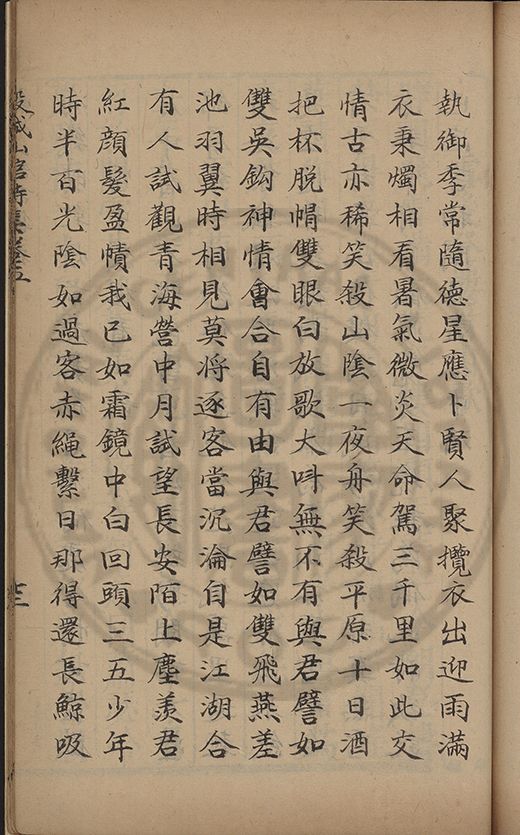 執御季常隨德星應卜賢人聚攬衣出迎雨滿
衣秉燭相看暑氣微炎天命駕三千里如此交
情古亦稀笑殺山陰一夜舟笑殺平原十日酒
把杯脫帽雙眼白放歌大呌無不有與君譬如
雙吳鈎神情會合自有由與君譬如雙飛燕差
池羽翼時相見莫將逐客當沉淪自是江湖合
有人試觀青海營中月試望長安陌上塵羨君
紅顔髮盈幘我已如霜鏡中白回頭三五少年
時半百光陰如過客赤繩繫日那得還長鯨吸
穀城山館詩集卷五
十三